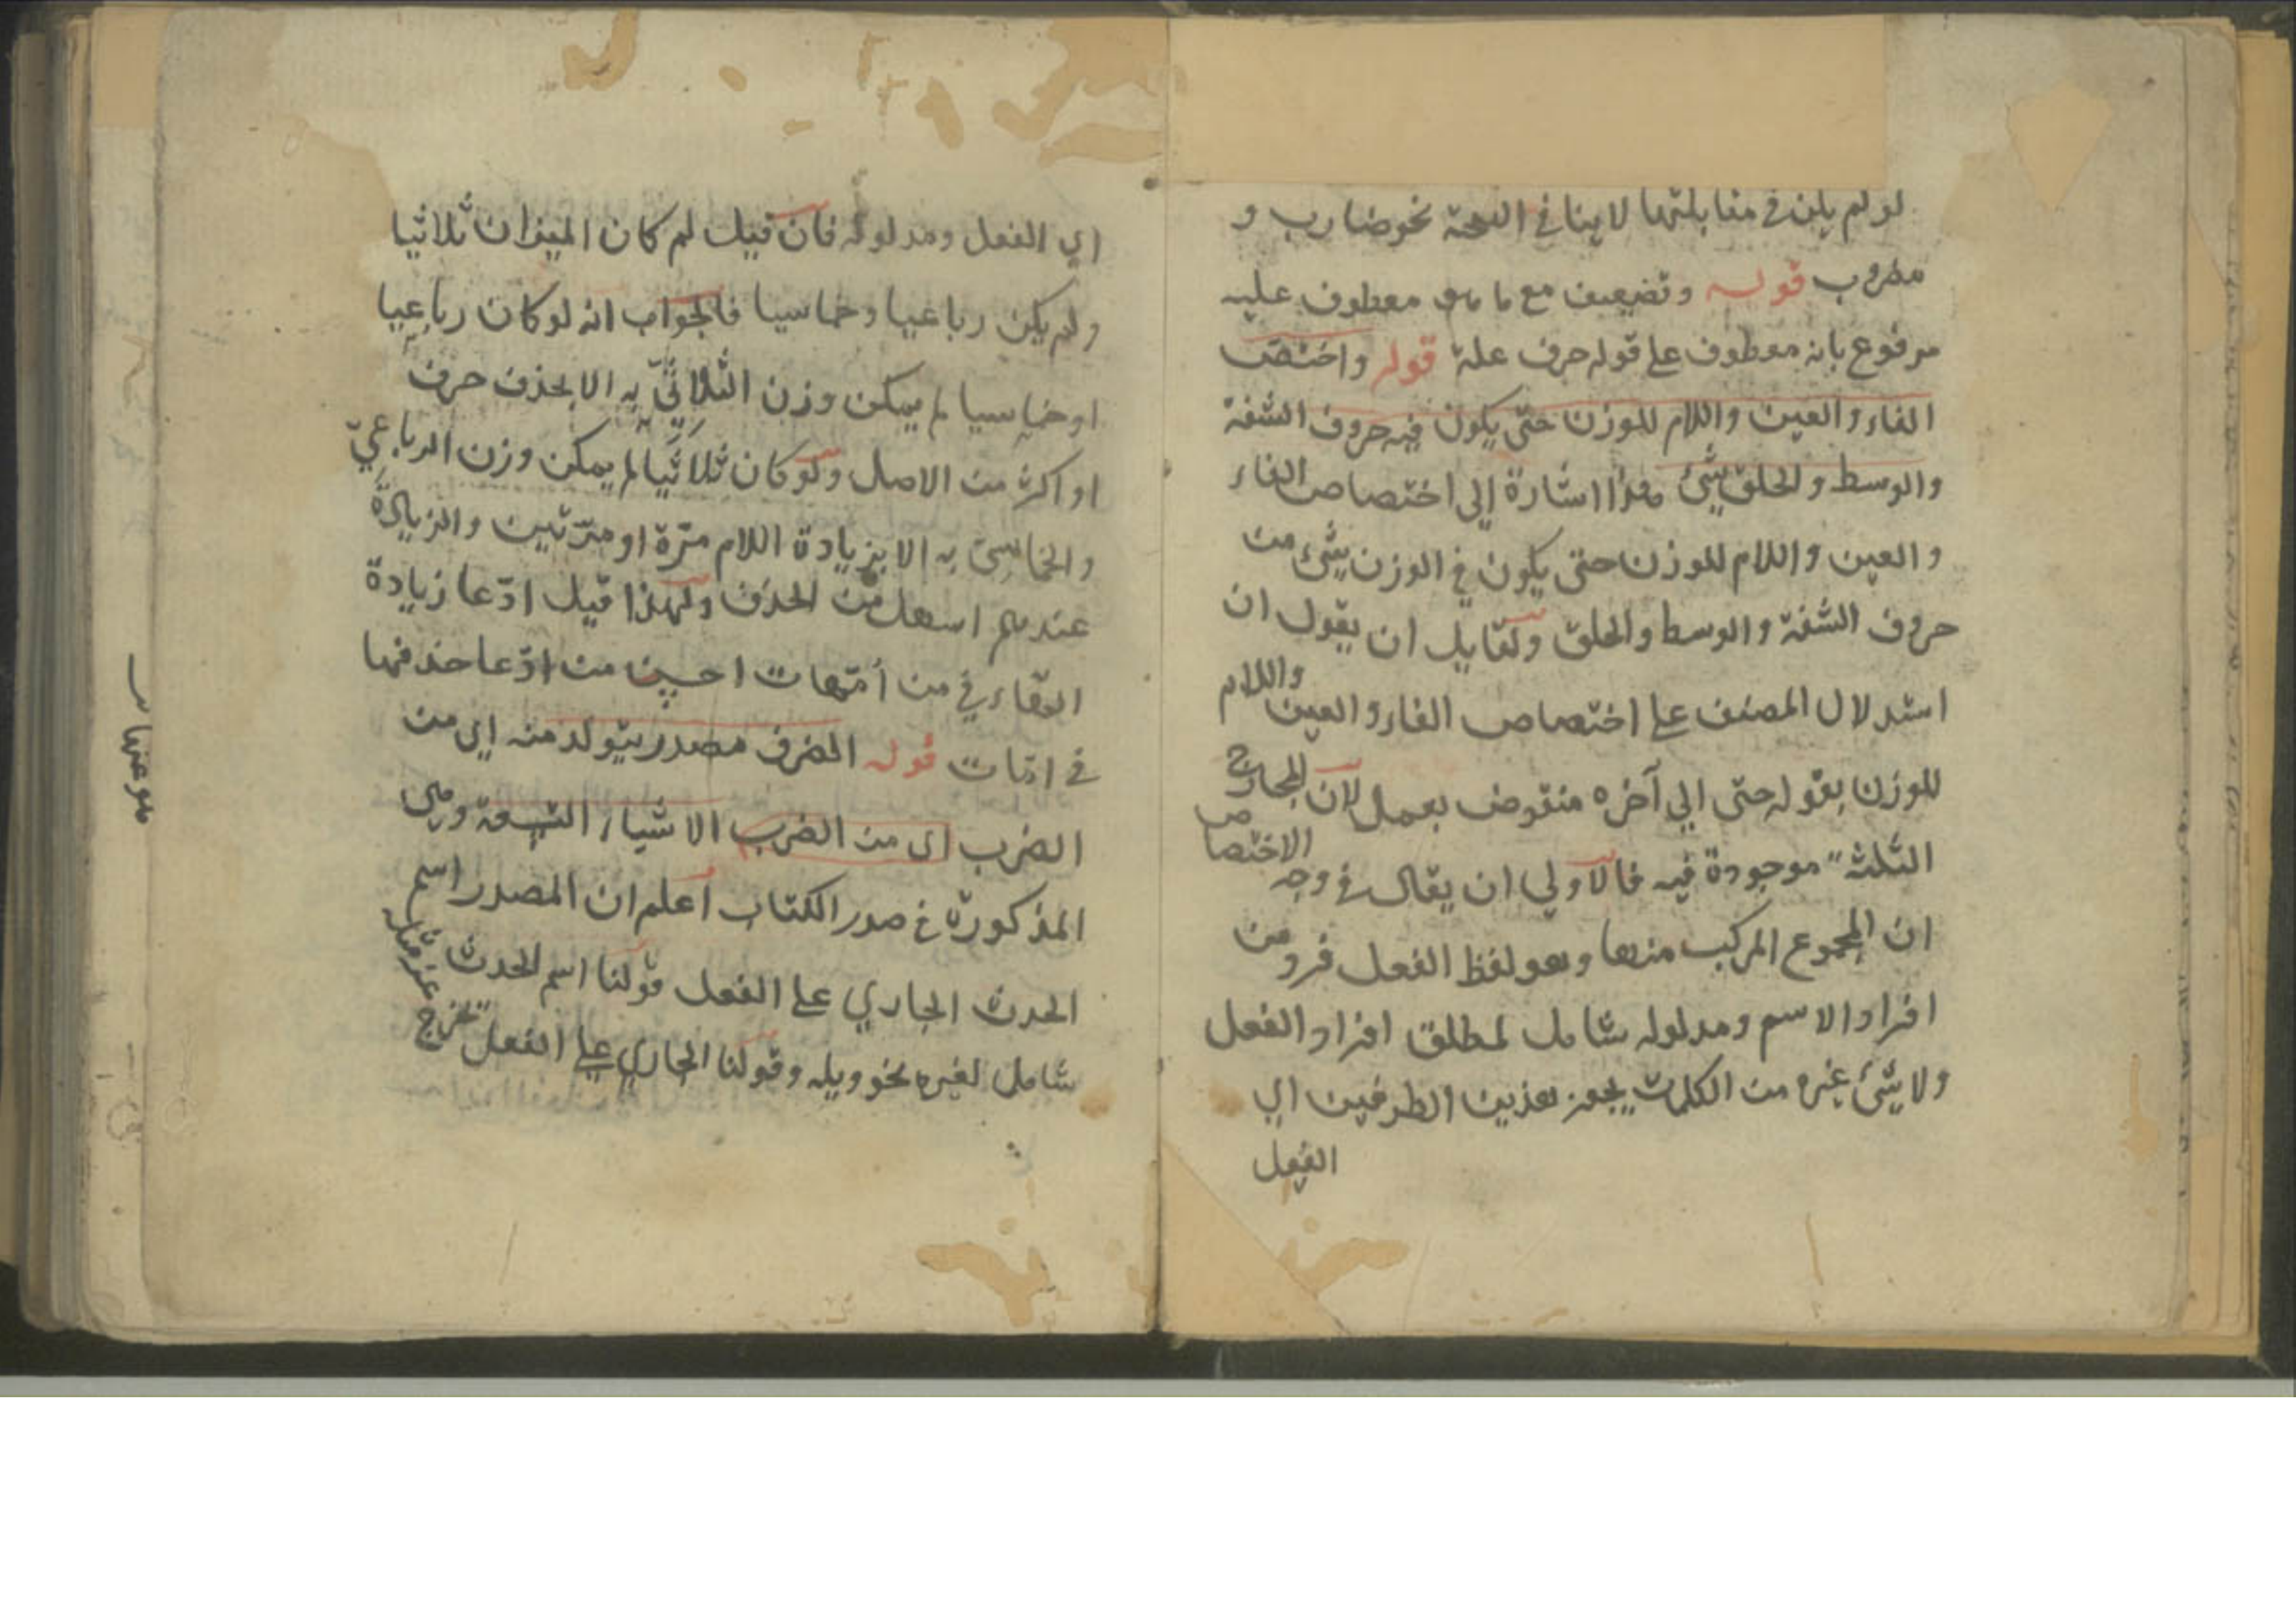 لو لم يكن في مقابلتها لا ينافي الصحة نحو ضارب و
مضروب قوله وتضعيف مع ما هو معطوف عليه
مرفوع بانه معطوف على قوله حرف علة قوله واختص
الفاء والعين واللام للوزن حتى يكون فيه حروف الشفة
والوسط والحلق شيئ هذا اشارة الى اختصاص الفاء
والعين واللام للوزن حتى يكون في الوزن شيئ من
حروف الشفة والوسط والحلق ولقايل ان يقول ان
استدلال المصنف على اختصاص الفاء والعين واللام
للوزن بقوله حتى الى آخره منقوض بعمل لان المخارج
الثلثة موجودة فيه فالاولى ان يقال في وجه الاختصاص
ان المجموع المركب منها وهو لفظ الفعل فرد من
افراد الاسم ومدلوله شامل لمطلق افراد الفعل
ولا شيئ غيره من الكلمات يجوز هذين الطرفين اي
الفعل
اي الفعل ومدلوله فان قيل لم كان الميزان ثلاثيا
ولم يكن رباعيا وخماسيا فالجواب انه لو كان رباعيا
او خماسيا لم يمكن وزن الثلاثيّ به الا بحذف حرف
او اكثر من الاصل ولو كان ثلاثيا لم يمكن وزن الرباعيّ
والخماسيّ به الا بزيادة اللام مرّة او مرّتين والزيادة
عندهم اسهل من الحذف ولهذا قيل ادّعا زيادة
الهاء في من أمّهات احسن من ادّعا حذفها
في امّات قوله الضرب مصدر يتولد منه اي من
الضرب اى من الضرب الاشياء التسعة وهى
المذكورة في صدر الكتاب اعلم ان المصدر اسم
الحدث الجاري على الفعل قولنا اسم الحدث
شامل لغيره نحو ويله وقولنا الجاري على الفعل يخرج